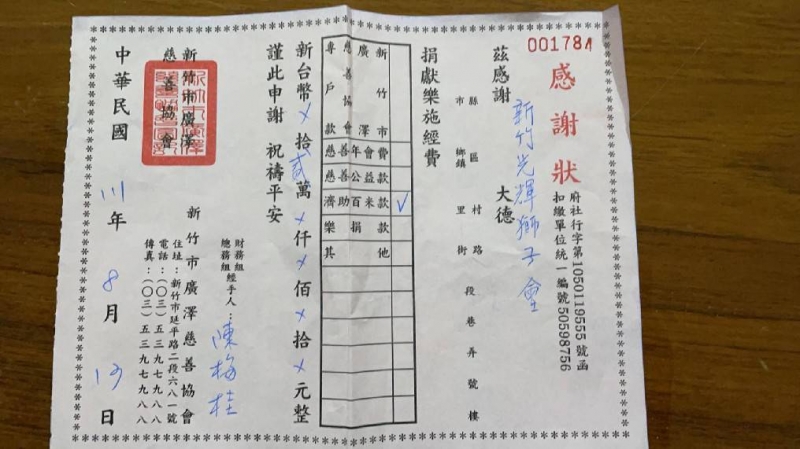 001784
感謝狀
府社行字第1050119555號函
扣繳單位統一編號50598756
茲感謝 新竹光輝獅子會 大德
縣 區 村 路 段 巷 弄 號 樓
市 鄉鎮 里 街
捐獻樂施經費
新竹市
廣澤
慈善協會
專戶款
年會費
慈善公益款
濟助百米款
樂捐
其他
新台幣×拾貳萬×仟×佰×拾×元整
謹此申謝 祝禱平安
財務組
總務組經手人：陳梅桂
新竹市廣澤慈善協會
住址：新竹市延平路二段六八一號
電話：(〇三)五三九七九八八
傳真：(〇三)五三九七九八八
新竹市廣澤
慈善協會
中華民國 111年 8月 日